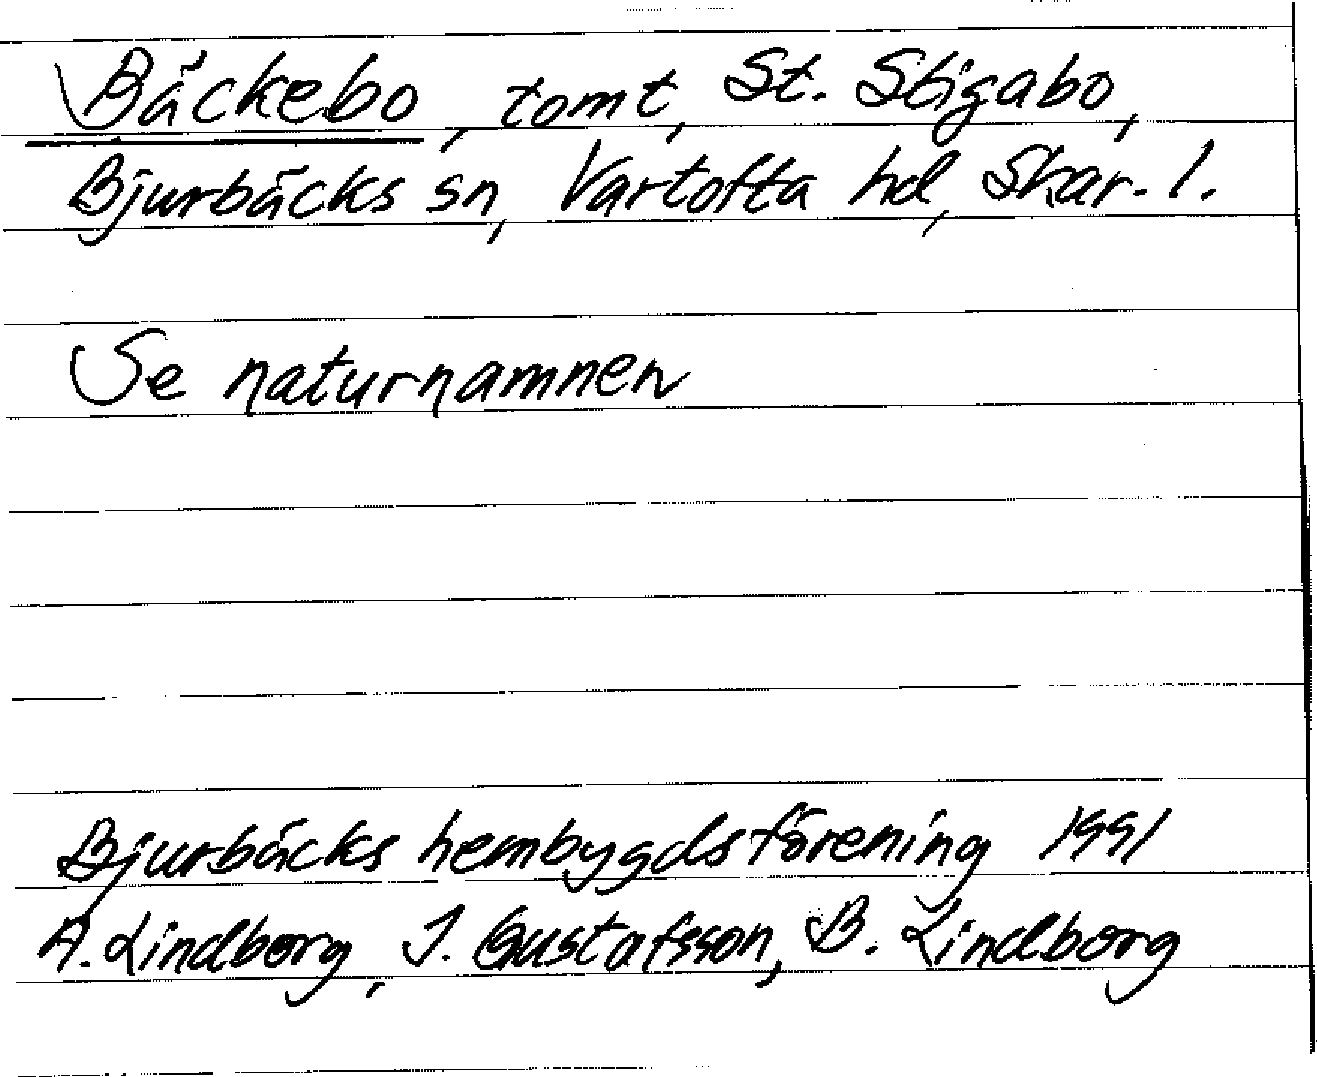 Bäckebo, tomt, St. Stigabo,
Bjurbäcks sn, Vartofta hd, Skar. l.
Se naturnamnen
Bjurbäcks hembygdsförening 1991
A. Lindborg, J. Gustafsson, B. Lindborg